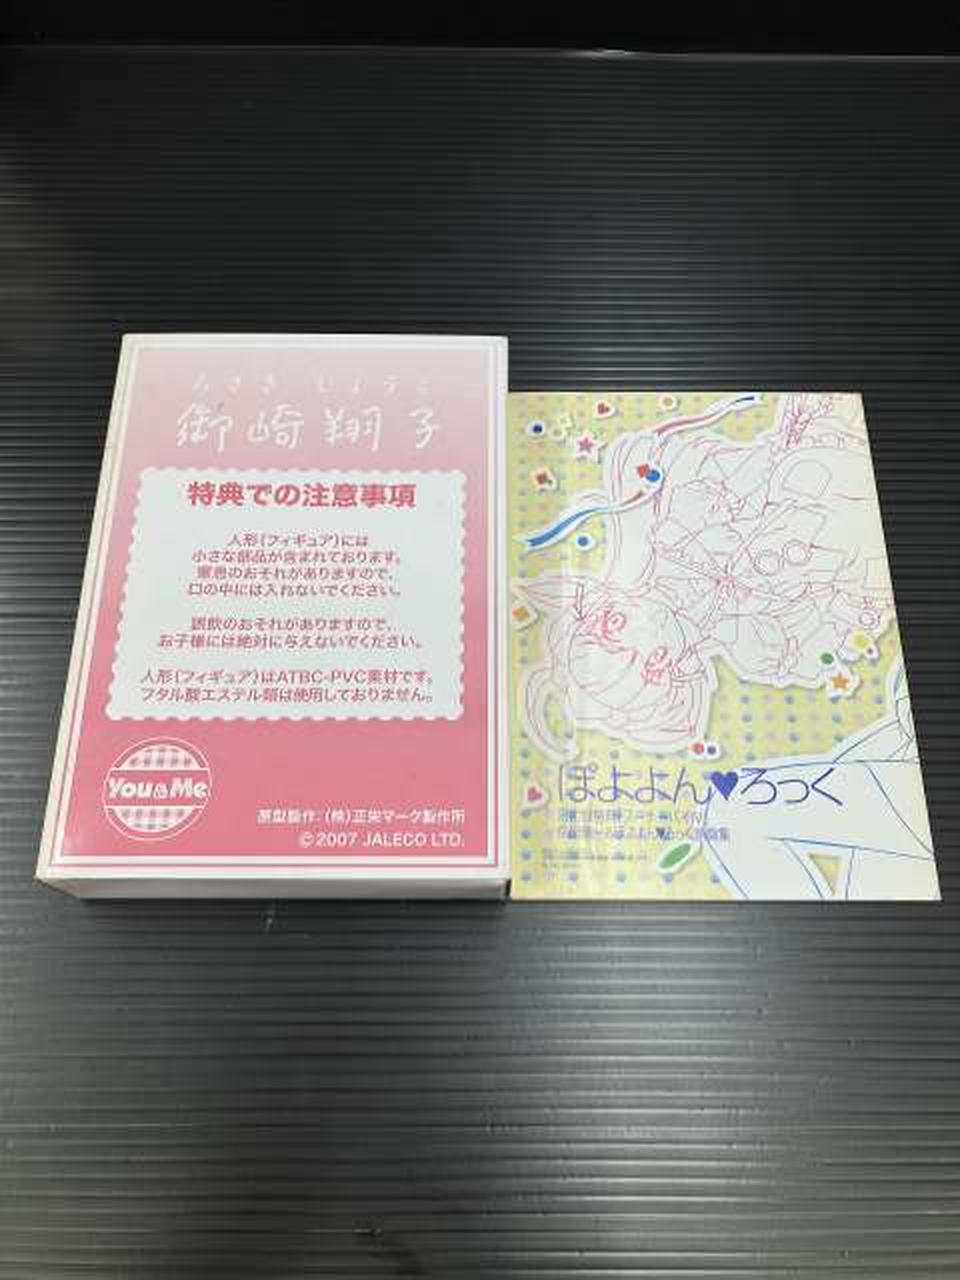 みさき しょうこ
御崎翔子
特典での注意事項
人形(フィギュア)には
小さな部品が含まれております。
窒息のおそれがありますので、
口の中には入れないでください。
誤飲のおそれがありますので、
お子様には絶対に与えないでください。
人形(フィギュア)はATBC-PVC素材です。
フタル酸エステル類は使用しておりません。
You&Me
原型製作:(株)正栄マーク製作所
©2007 JALECO LTD.
ぽよよん♥ろっく